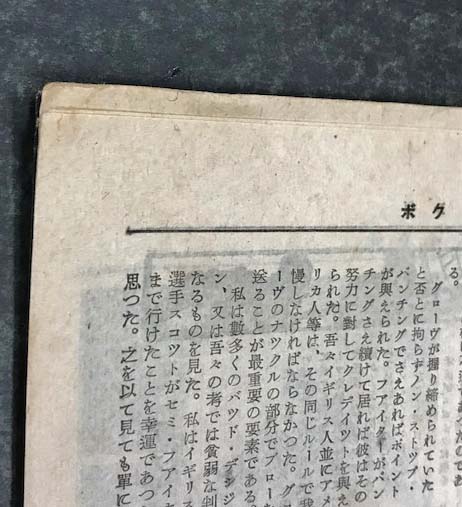 ボク
る。
グローヴが握り締められていた
と否とに拘らずノン・ストップ・
パンチングでさえあればポイント
が与えられた。ファイターがパン
チングさえ続けて居れば彼はその
努力に対してクレデイツトを與え
られた。吾々イギリス人並にアメ
リカ人等は、その同じルールで我
慢しなければならなかつた。グロ
ーヴのナツクルの部分でブローを
送ることが最重要の要素である。
私は數多くのバツド・デシジ
ン、又は吾々の考では貧弱な判
なるものを見た。私はイギリス
選手スコツトがセミ・フアイナ
まで行けたことを幸運であつ
思つた。之を以て見ても單に